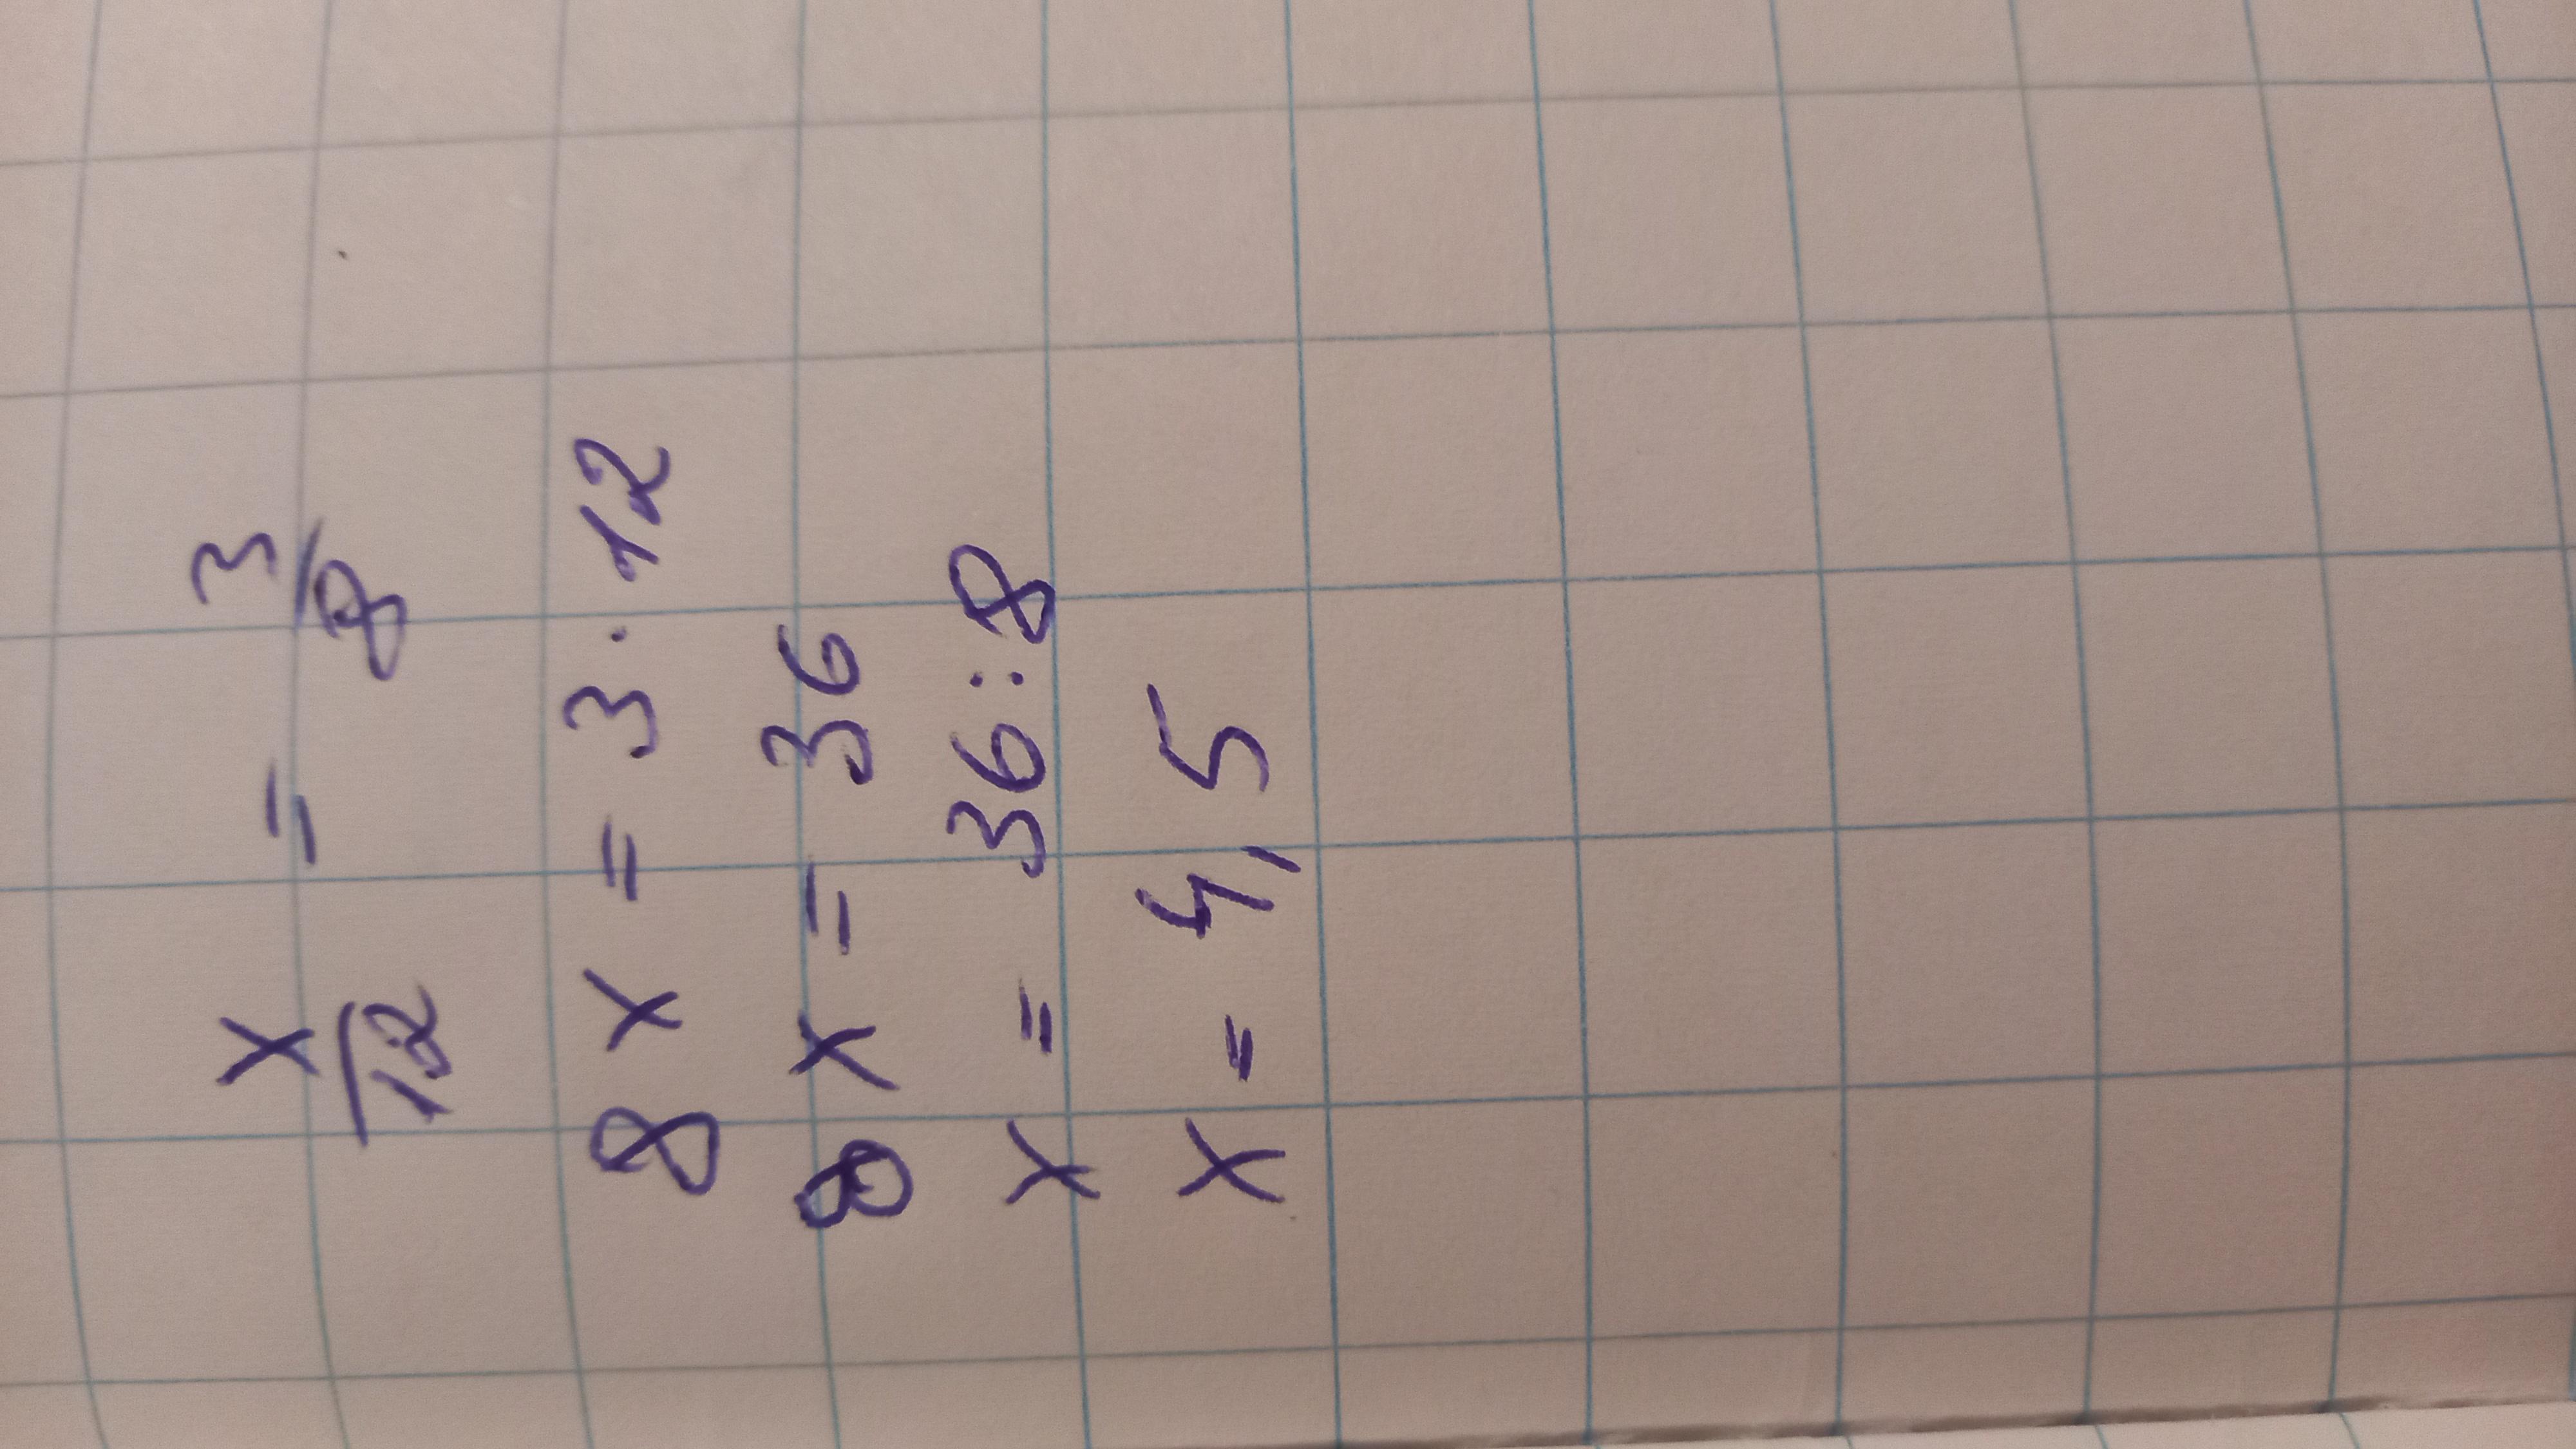 x/12 = 3/8
8x = 3·12
8x = 36
x = 36:8
x = 4,5